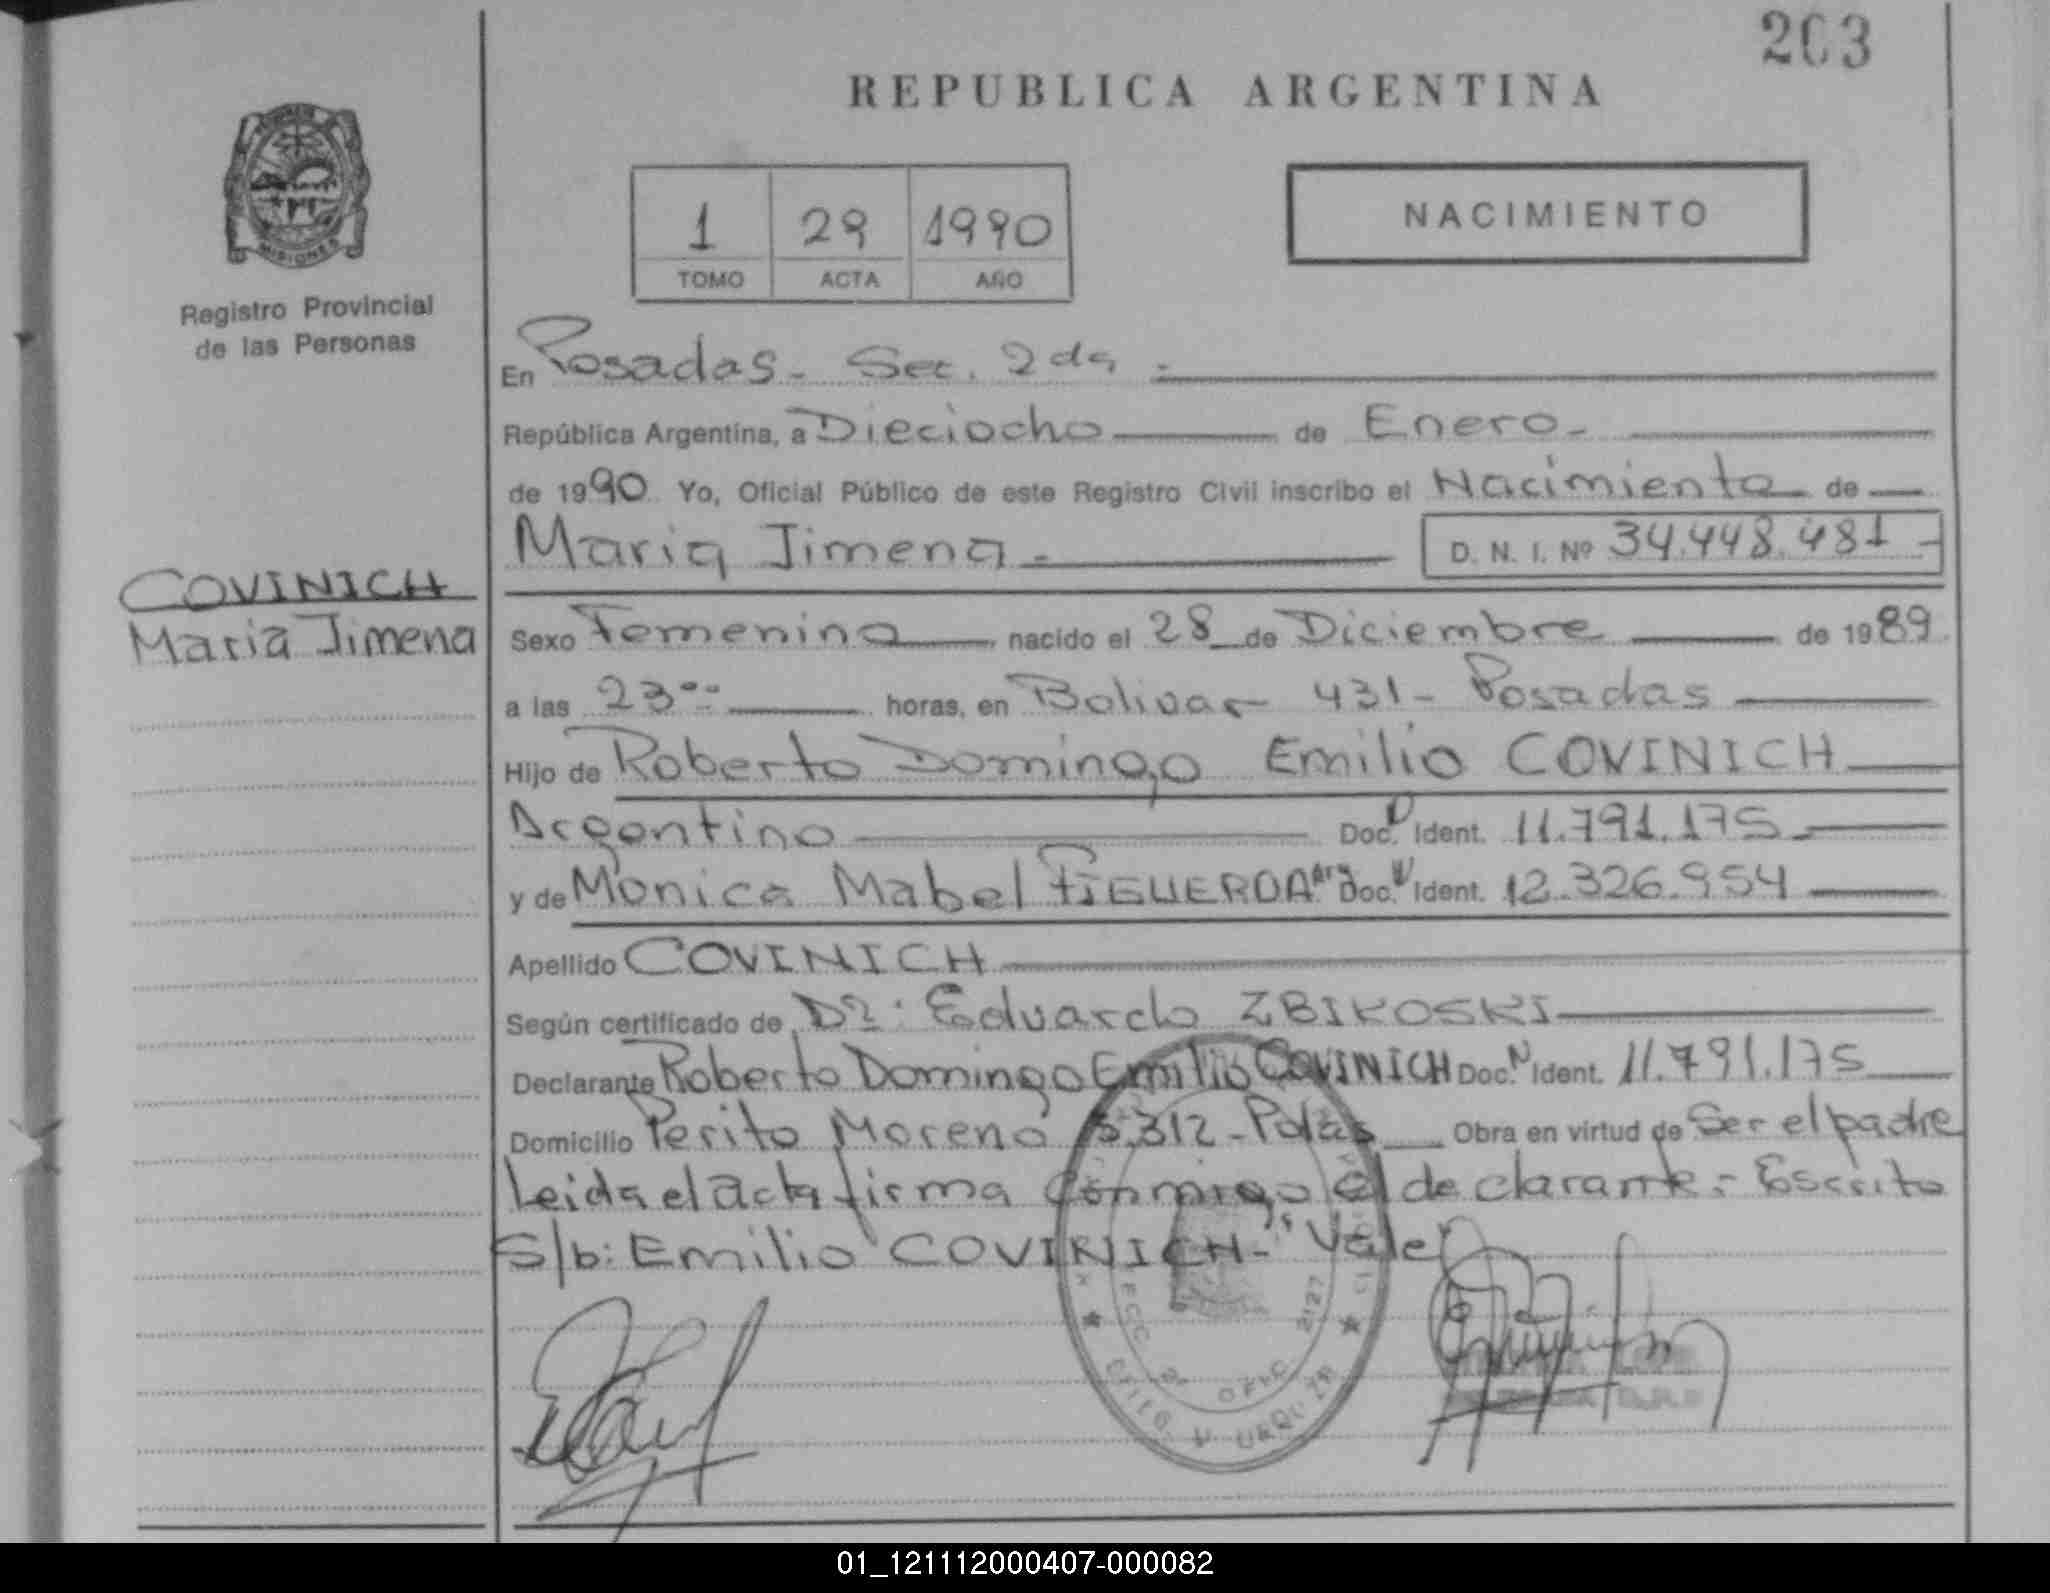 203
REPUBLICA ARGENTINA
1 29 1990
TOMO ACTA AÑO
NACIMIENTO
MISIONES
Registro Provincial
de las Personas
COVINICH
Maria Jimena
En Posadas - Sec. 2da -
República Argentina, a Dieciocho de Enero -
de 1990 Yo, Oficial Público de este Registro Civil inscribo el Nacimiento de
Maria Jimena - D. N. I. Nº 34.448.481 -
Sexo Femenino nacido el 28 de Diciembre de 1989
a las 23ºº horas, en Bolivar 431 - Posadas
Hijo de Roberto Domingo Emilio COVINICH
Argentino Doc. Ident. 11.791.175
y de Monica Mabel FIGUEROA Arg Doc. Ident. 12.326.954
Apellido COVINICH
Según certificado de Dr: Eduardo ZBIKOSKI
Declarante Roberto Domingo Emilio COVINICH Doc. N Ident. 11.791.175
Domicilio Perito Moreno 312 - Pdas Obra en virtud de Ser el padre
Leida el acta firma conmigo el declarante - Escrito
S/b: Emilio COVINICH - "Vale"
01_121112000407-000082